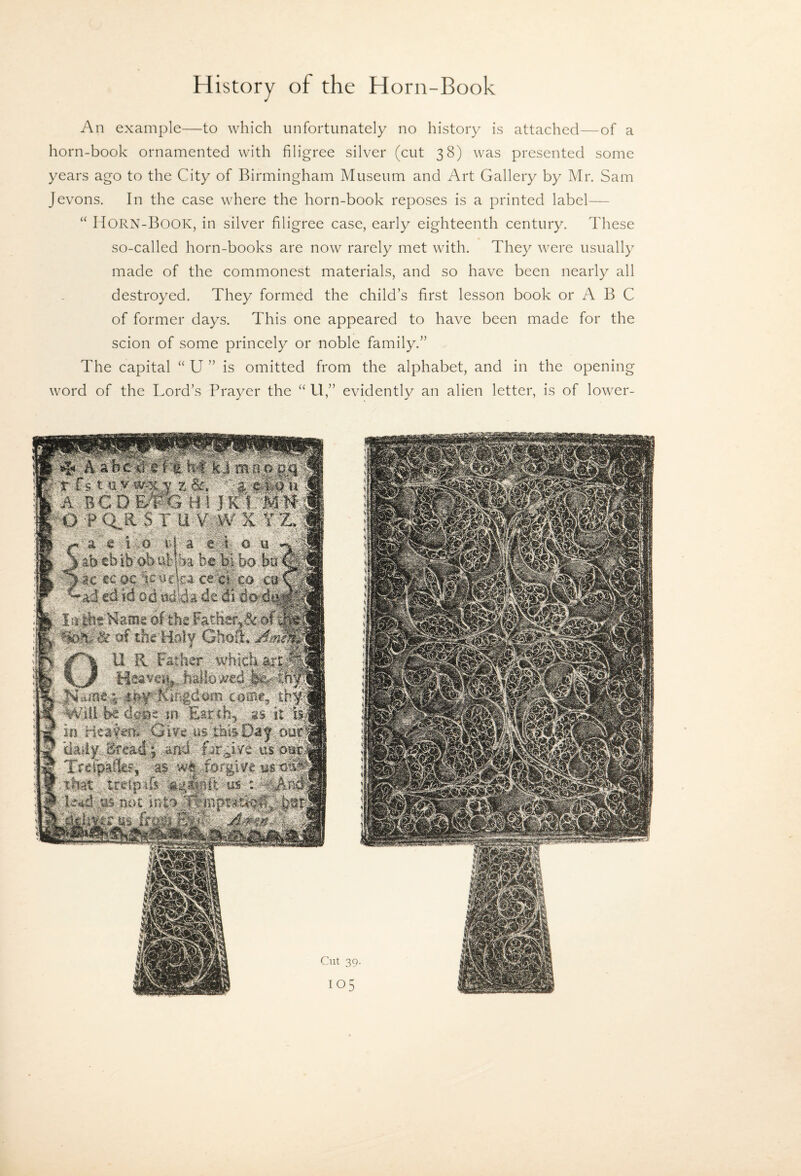 History of the Horn-Book
An example—to which unfortunately no history is attached—of a
horn-book ornamented with filigree silver (cut 38) was presented some
years ago to the City of Birmingham Museum and Art Gallery by Mr. Sam
Jevons. In the case where the horn-book reposes is a printed label—
“ HORN-BOOK, in silver filigree case, early eighteenth century. These
so-called horn-books are now rarely met with. They were usually
made of the commonest materials, and so have been nearly all
destroyed. They formed the child’s first lesson book or A B C
of former days. This one appeared to have been made for the
scion of some princely or noble family.”
The capital “ U ” is omitted from the alphabet, and in the opening
word of the Lord’s Prayer the “ U,” evidently an alien letter, is of lower-
A a b c d e f g h i k l m n o p q
r ſ s t u v w x y z &. a e i o u
A B C D E F G H I J K L M N
O P Q R S T U V W X Y Z.
a e i o u a e i o u
ab eb ib ob ub ba be bi bo bu
ac ec oc uc ca ce ci co cu
ad ed id od ud da de di do du
In the Name of the Father, & of the
& of the Holy Ghoſt. Amen.
OUR Father which art
Heaven, hallowed be thy
Name; thy Kingdom come, thy
Will be done in Earth, as it is
in Heaven. Give us this Day our
daily Bread; and forgive us our
Treſpaſſes, as we forgive
that treſpaſs againſt us : And
lead us not into Temptation, but
deliver us from Amen
Cut 39.
105